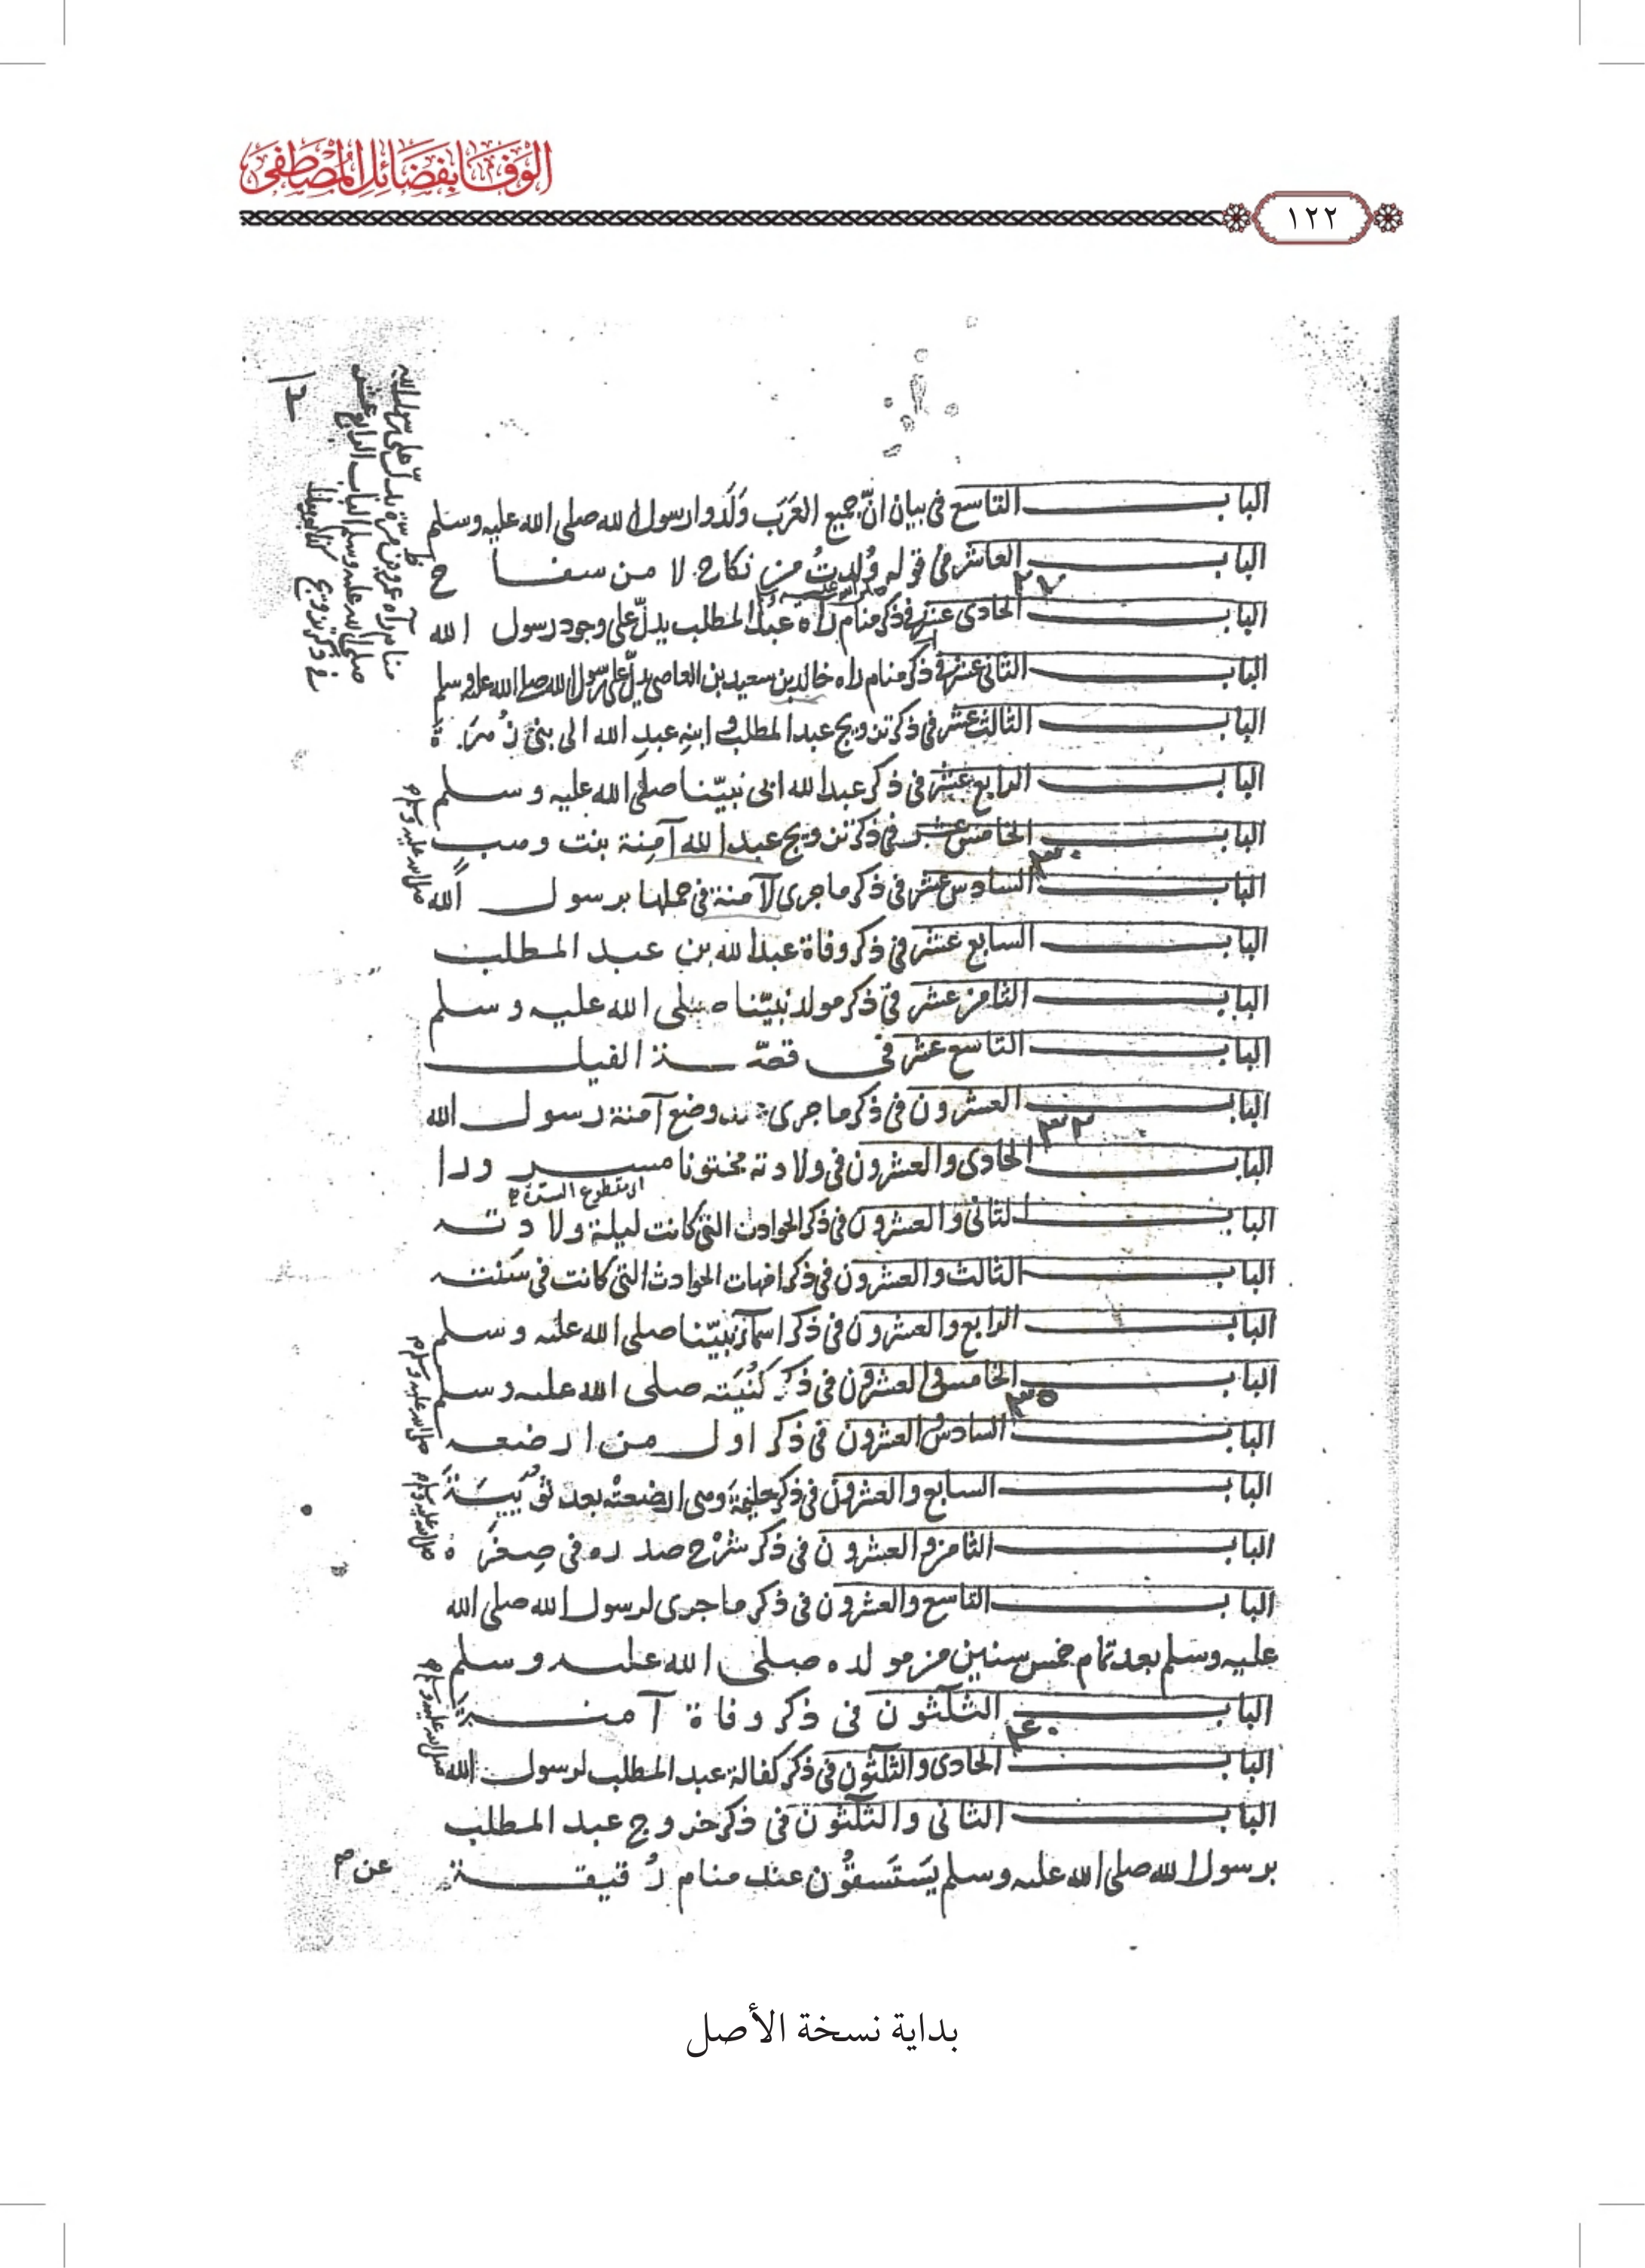 الوفا بفضائل المصطفى
١٢٢
الباب التاسع فى بيان انّ جميع العَرَب وَلَدوا رسول الله صلى الله عليه وسلم
الباب العاشر فى قوله وُلِدتُ من نكاح لا من سفاح
٢٧
الباب الحادى عشر فى ذكر منام رآه عبد المطلب يدلّ على وجود رسول الله
الباب الثانى عشر فى ذكر منام راه خالد بن سعيد بن العاصى يدلّ على رسول الله صلى الله عليه وسلم
الباب الثالث عشر فى ذكر تزويج عبد المطلب و ابنِه عبدِ الله الى بنى زُهرَة
الباب الرابع عشر فى ذكر عبد الله ابى نبيّنا صلى الله عليه وسلم
الباب الخامس عشر فى ذكر تزويج عبد الله آمنة بنت وهب
٣٠
الباب السادس عشر فى ذكر ما جرى لآمنة فى حملها برسول الله
صلى الله عليه وسلم
الباب السابع عشر فى ذكر وفاة عبد الله بن عبد المطلب
الباب الثامن عشر فى ذكر مولد نبيّنا صلى الله عليه وسلم
الباب التاسع عشر فى قصّة الفيل
الباب العشرون فى ذكر ما جرى عند وضع آمنة رسول الله
٣٢
الباب الحادى والعشرون فى ولادته مختونا مسرورا
الباب الثانى والعشرون فى ذكر الحوادث التى كانت ليلة ولادته
الباب الثالث والعشرون فى ذكر امهات الحوادث التى كانت فى سَنَته
الباب الرابع والعشرون فى ذكر اسماء نبيّنا صلى الله عليه وسلم
الباب الخامس والعشرون فى ذكر كُنْيَته صلى الله عليه وسلم
٣٥
الباب السادس والعشرون فى ذكر اول من ارضعه
صلى الله عليه وسلم
الباب السابع والعشرون فى ذكر حليمة ومن ارضعته بعد ثُوَيْبَة
صلى الله عليه وسلم
الباب الثامن والعشرون فى ذكر شَرْح صدره فى صِغَره
الباب التاسع والعشرون فى ذكر ما جرى لرسول الله صلى الله
عليه وسلم بعد تمام خمس سنين من مولده صلى الله عليه وسلم
الباب الثلثون فى ذكر وفاة آمنة
٤٠
الباب الحادى والثلثون فى ذكر كفالة عبد المطلب لرسول الله
صلى الله عليه وسلم
الباب الثانى والثلثون فى ذكر خروج عبد المطلب
برسول الله صلى الله عليه وسلم يَستَسقُون عند منام رُقيقة
بداية نسخة الأصل